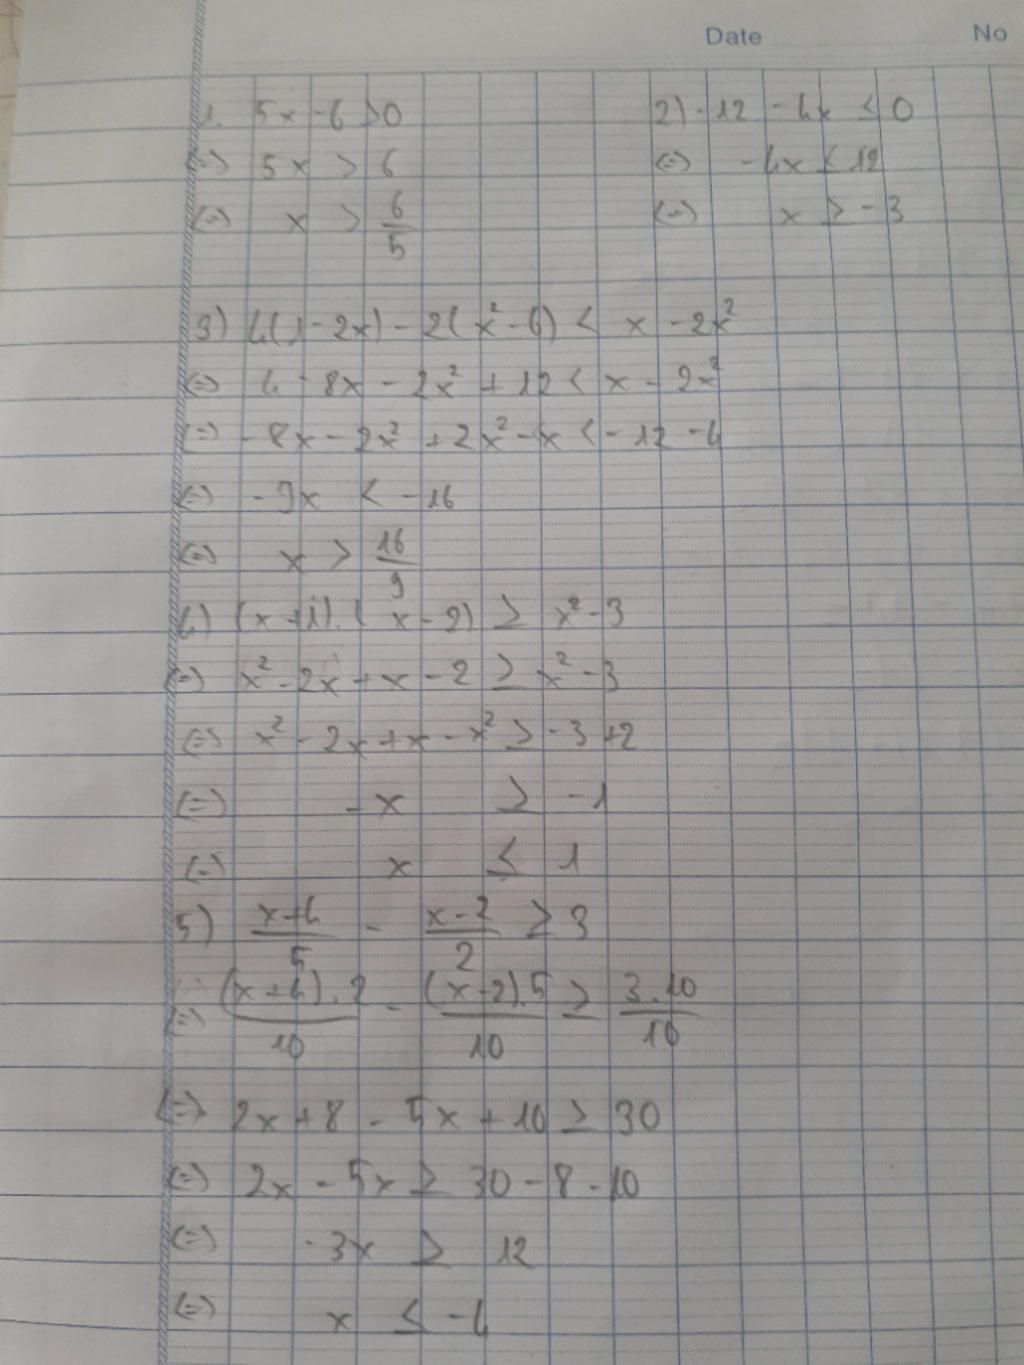 Date No
1. 5x - 6 > 0
(=) 5x > 6
(=) x > 6/5
2) -12 - 4x ≤ 0
(=) -4x ≤ 12
(=) x ≥ -3
3) 4(1 - 2x) - 2(x² - 6) < x - 2x²
(=) 4 - 8x - 2x² + 12 < x - 2x²
(=) -8x - 2x² + 2x² - x < -12 - 4
(=) -9x < -16
(=) x > 16/9
4) (x + 1).(x - 2) ≥ x² - 3
(=) x² - 2x + x - 2 ≥ x² - 3
(=) x² - 2x + x - x² ≥ -3 + 2
(=) -x ≥ -1
(=) x ≤ 1
5) (x+4)/5 - (x-2)/2 ≥ 3
(=) (x+4).2/10 - (x-2).5/10 ≥ 3.10/10
(=) 2x + 8 - 5x + 10 ≥ 30
(=) 2x - 5x ≥ 30 - 8 - 10
(=) -3x ≥ 12
(=) x ≤ -4